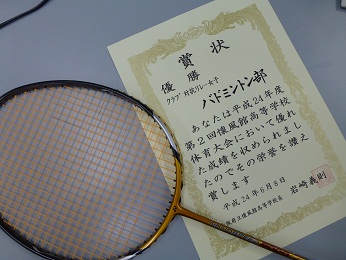 賞状
優勝
クラブ対抗リレー女子
バドミントン部
あなたは平成24年度
第2回懐風館高等学校
体育大会において優れ
た成績を収められまし
たのでその栄誉を讃え
賞します
平成24年6月8日
大阪府立懐風館高等学校長 岩崎義則